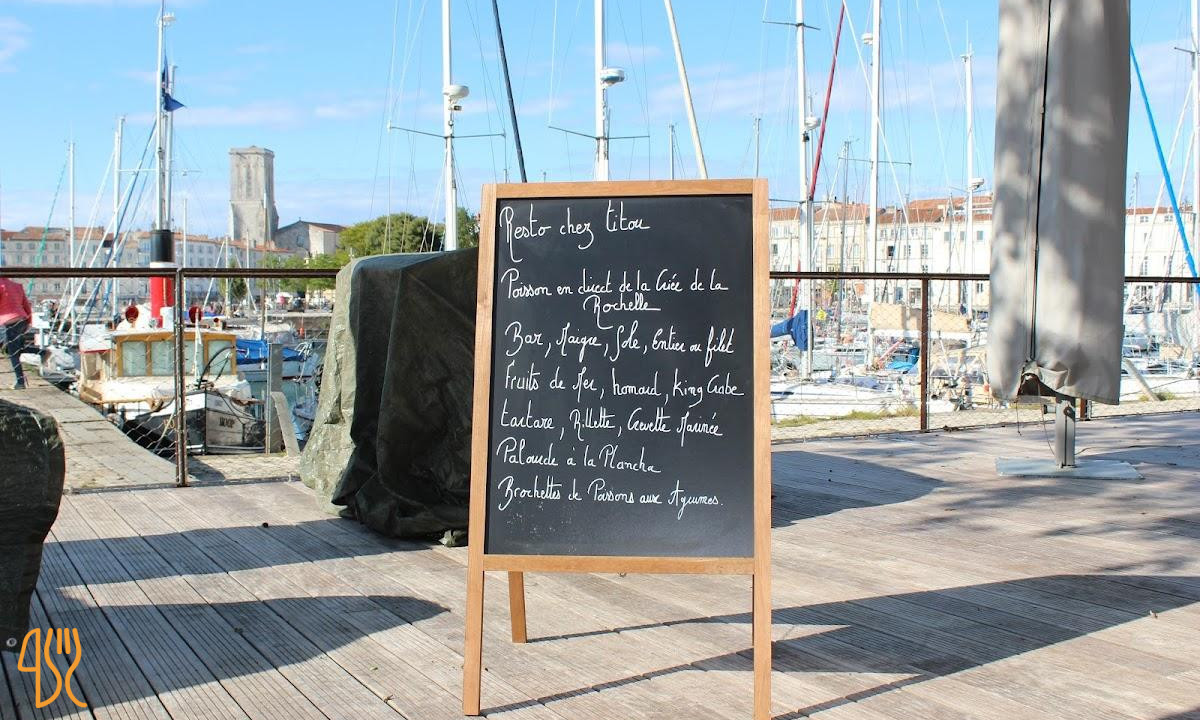 Resto chez titou
Poisson en direct de la Criée de la
Rochelle
Bar, Maigre, Sole, Entier ou filet
Fruits de Mer, homard, King Crabe
tartare, Rillette, Crevette Marinée
Palourde à la Plancha
Brochettes de Poissons aux Agrumes.